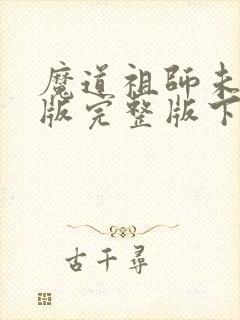 魔道祖師未
版完整版下
古千尋